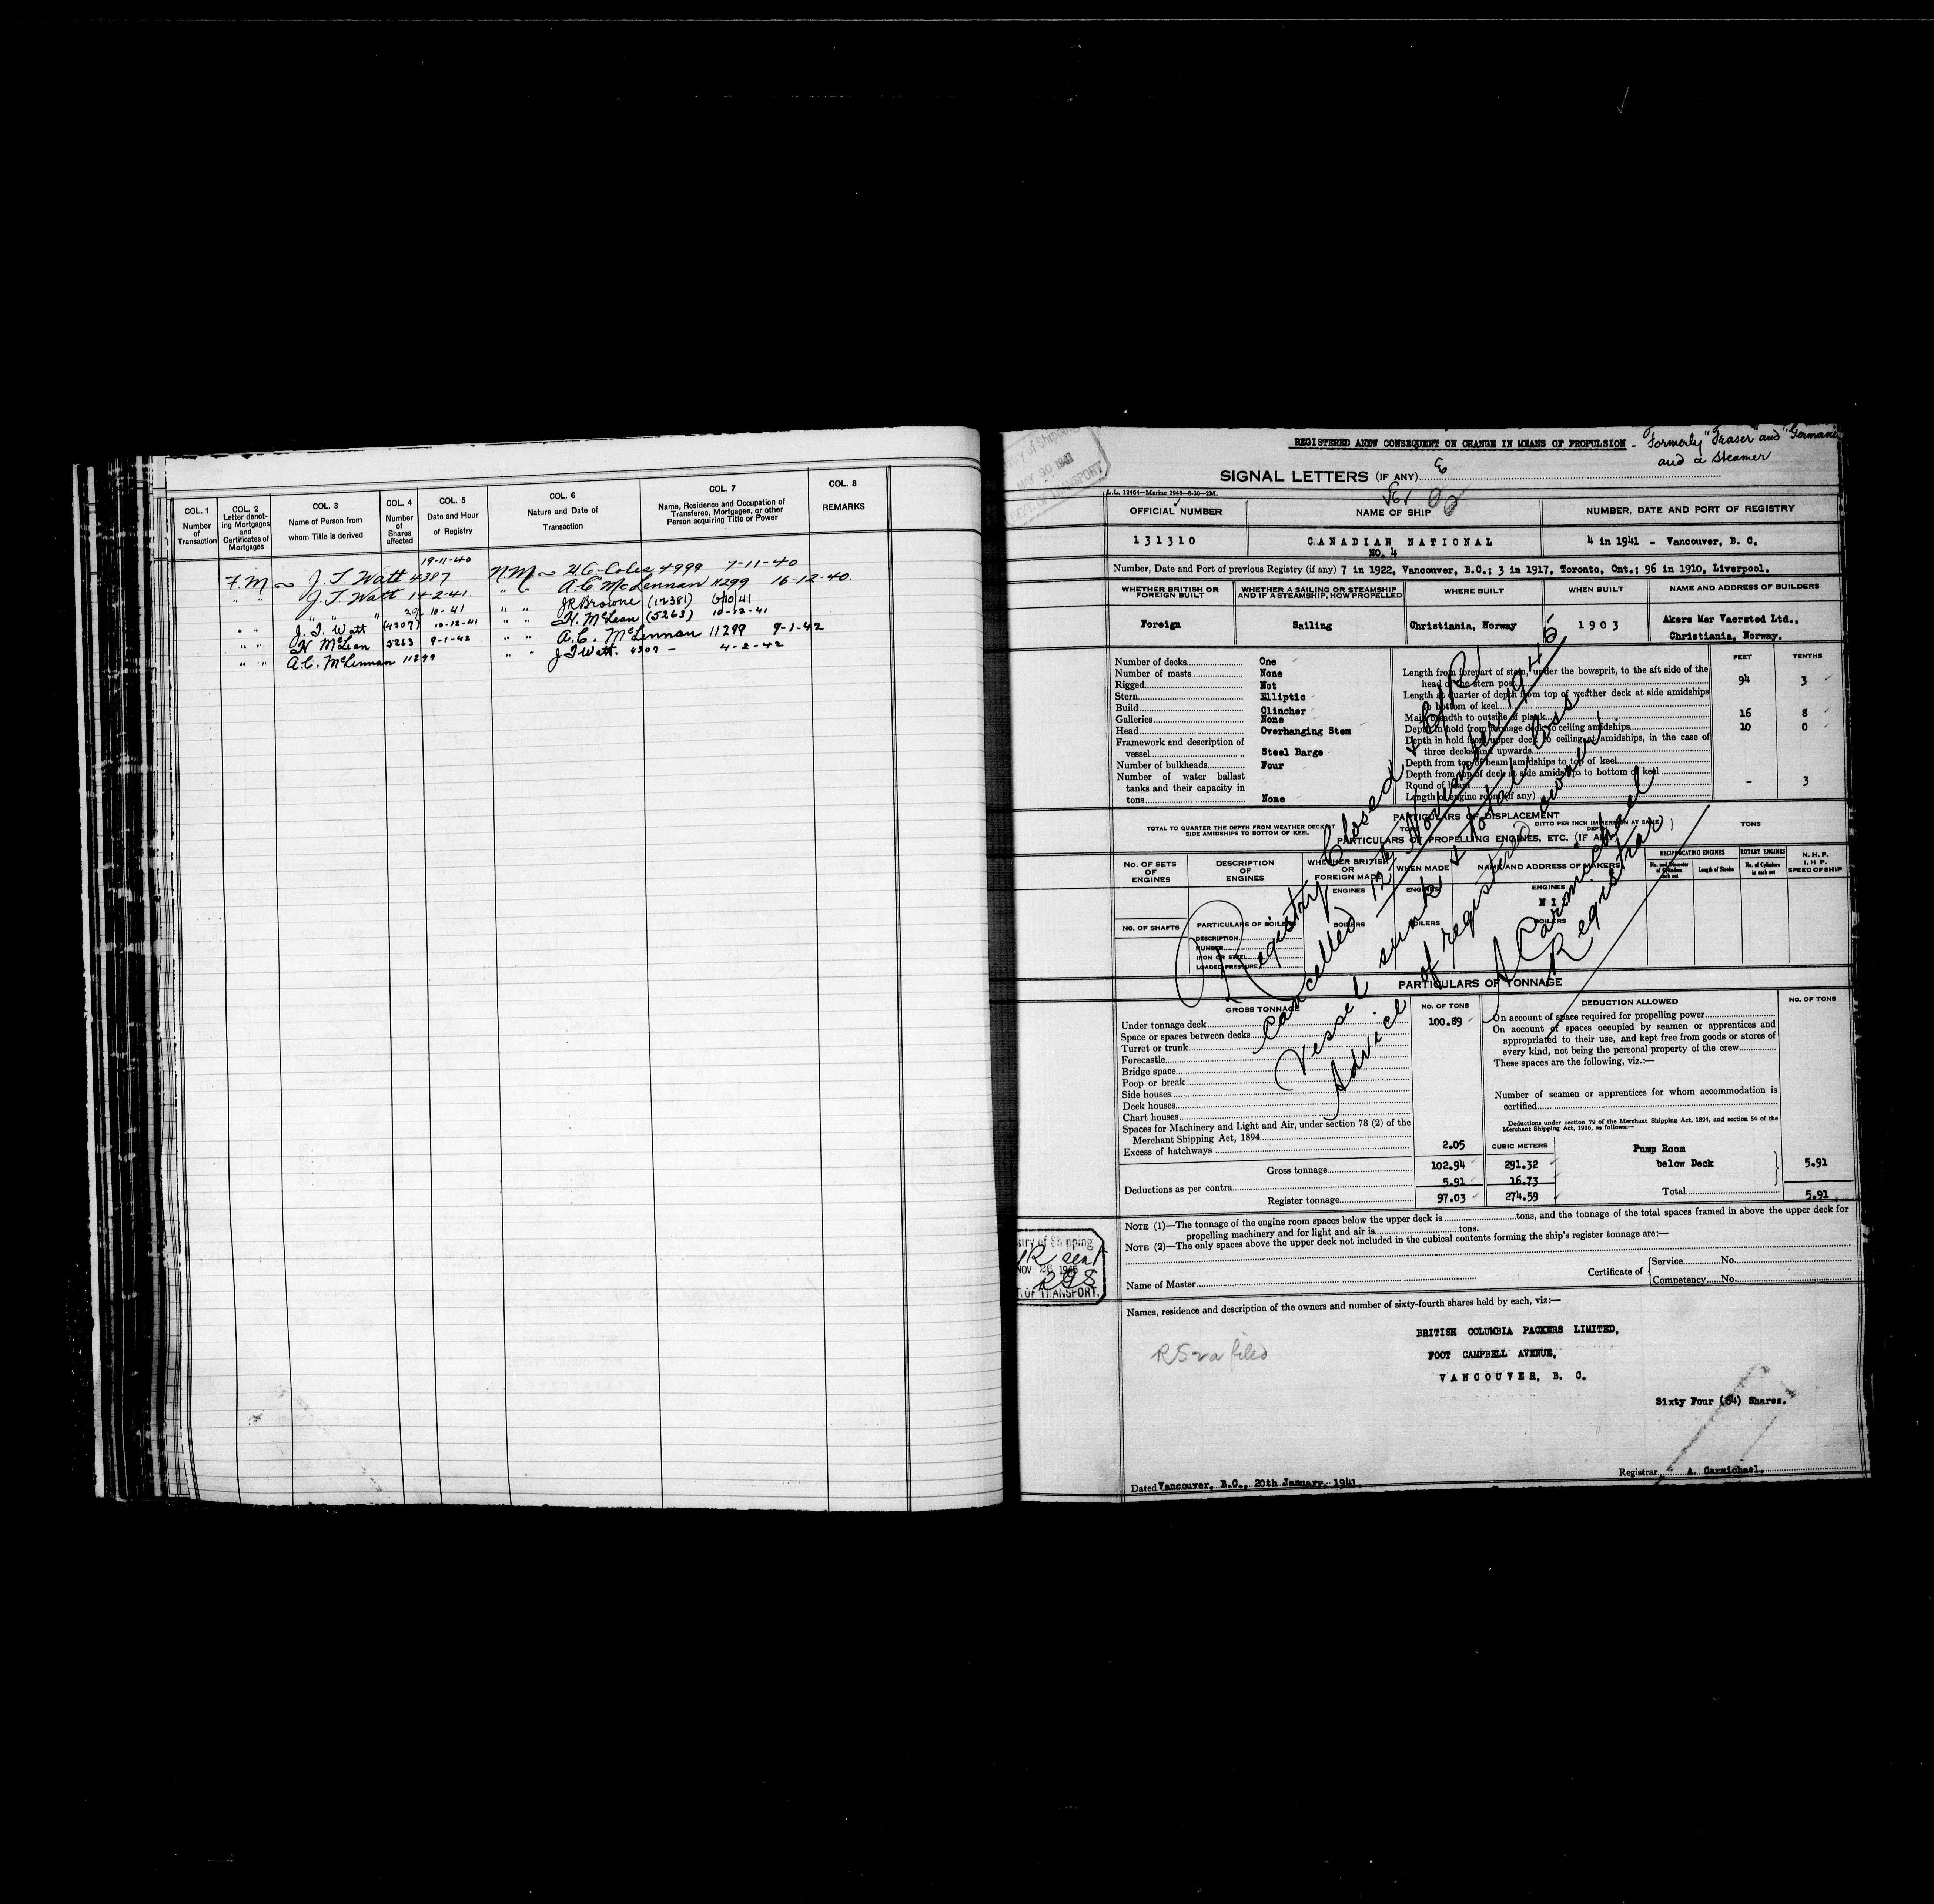 COL. 1 COL. 2 COL. 3 COL. 4 COL. 5 COL. 6 COL. 7 COL. 8
Number of Transaction
Letter denoting Mortgages and Certificates of Mortgages
Name of Person from whom Title is derived
Number of Shares affected
Date and Hour of Registry
Nature and Date of Transaction
Name, Residence and Occupation of Transferee, Mortgagee, or other Person acquiring Title or Power
REMARKS
19-11-40
F.M ~ J. T. Watt 4387 N.M ~ Coles 4999 7-11-40
" " J. T. Watt 14-2-41. " " A. C. McLennan 11299 16-12-40.
" " " 29-10-41 " " J R Browne (12381) 6/10/41
" " J. T. Watt (4307) 10-12-41 " " H. McLean (5263) 10-12-41
" " H McLean 5263 9-1-42 " " A. C. McLennan 11299 9-1-42
" " A. C. McLennan 11299 " " J T Watt. 4307 - 4-2-42
REGISTERED ANEW CONSEQUENT ON CHANGE IN MEANS OF PROPULSION - Formerly "Fraser" and "Germania"
and a Steamer
MAY 30 1941
OF TRANSPORT
SIGNAL LETTERS (IF ANY)
L.L. 12464—Marine 2948—6-30—2M.
OFFICIAL NUMBER NAME OF SHIP NUMBER, DATE AND PORT OF REGISTRY
131310 CANADIAN NATIONAL 4 in 1941 - Vancouver, B. C.
NO. 4
Number, Date and Port of previous Registry (if any) 7 in 1922, Vancouver, B.C.; 3 in 1917, Toronto, Ont.; 96 in 1910, Liverpool.
WHETHER BRITISH OR FOREIGN BUILT
WHETHER A SAILING OR STEAMSHIP AND IF A STEAMSHIP, HOW PROPELLED
WHERE BUILT
WHEN BUILT
NAME AND ADDRESS OF BUILDERS
Foreign Sailing Christiania, Norway 1903 Akers Mer Vaersted Ltd.,
Christiania, Norway.
FEET TENTHS
Number of decks One
Number of masts None
Rigged Not
Stern Elliptic
Build Clincher
Galleries None
Head Overhanging Stem
Framework and description of
vessel Steel Barge
Number of bulkheads Four
Number of water ballast
tanks and their capacity in
tons None
Length from forepart of stem, under the bowsprit, to the aft side of the
head of the stern post 94 3
Length at quarter of depth from top of weather deck at side amidships
to bottom of keel
Main breadth to outside of plank 16 8
Depth in hold from tonnage deck to ceiling amidships 10 0
Depth in hold from upper deck to ceiling at amidships, in the case of
three decks and upwards
Depth from top of beam amidships to top of keel
Depth from top of deck at side amidships to bottom of keel
Round of beam - 3
Length of engine room (if any)
PARTICULARS OF DISPLACEMENT
TOTAL TO QUARTER THE DEPTH FROM WEATHER DECK AT
SIDE AMIDSHIPS TO BOTTOM OF KEEL
TONS
DITTO PER INCH IMMERSION AT SAME
DEPTH
TONS
PARTICULARS OF PROPELLING ENGINES, ETC. (IF ANY)
NO. OF SETS OF ENGINES
DESCRIPTION OF ENGINES
WHETHER BRITISH OR FOREIGN MADE
WHEN MADE
NAME AND ADDRESS OF MAKERS
RECIPROCATING ENGINES
No. and Diameter of Cylinders each set
Length of Stroke
ROTARY ENGINES
No. of Cylinders in each set
N.H.P.
I.H.P.
SPEED OF SHIP
ENGINES ENGINES ENGINES
NIL
NO. OF SHAFTS
PARTICULARS OF BOILERS
BOILERS BOILERS BOILERS
DESCRIPTION
NUMBER
IRON OR STEEL
LOADED PRESSURE
Registry Closed &
Cancelled 12th November 1945
Vessel sunk & total loss
Advice of registered owner
A Carmichael
Registrar
PARTICULARS OF TONNAGE
GROSS TONNAGE NO. OF TONS
Under tonnage deck 100.89
Space or spaces between decks
Turret or trunk
Forecastle
Bridge space
Poop or break
Side houses
Deck houses
Chart houses
Spaces for Machinery and Light and Air, under section 78 (2) of the
Merchant Shipping Act, 1894
Excess of hatchways 2.05 CUBIC METERS
Gross tonnage 102.94 291.32
Deductions as per contra 5.91 16.73
Register tonnage 97.03 274.59
DEDUCTION ALLOWED NO. OF TONS
On account of space required for propelling power
On account of spaces occupied by seamen or apprentices and
appropriated to their use, and kept free from goods or stores of
every kind, not being the personal property of the crew
These spaces are the following, viz.:—
Number of seamen or apprentices for whom accommodation is
certified
Deductions under section 79 of the Merchant Shipping Act, 1894, and section 54 of the
Merchant Shipping Act, 1906, as follows:—
Pump Room
below Deck 5.91
Total 5.91
NOTE (1)—The tonnage of the engine room spaces below the upper deck is tons, and the tonnage of the total spaces framed in above the upper deck for
propelling machinery and for light and air is tons.
NOTE (2)—The only spaces above the upper deck not included in the cubical contents forming the ship's register tonnage are:—
Name of Master Certificate of Service No.
Competency No.
Shipping
NOV 26 1945
OF TRANSPORT.
Names, residence and description of the owners and number of sixty-fourth shares held by each, viz:—
BRITISH COLUMBIA PACKERS LIMITED,
FOOT CAMPBELL AVENUE,
VANCOUVER, B. C.
filed
Sixty Four (64) Shares.
Dated Vancouver, B.C., 20th January 1941 Registrar A. Carmichael.